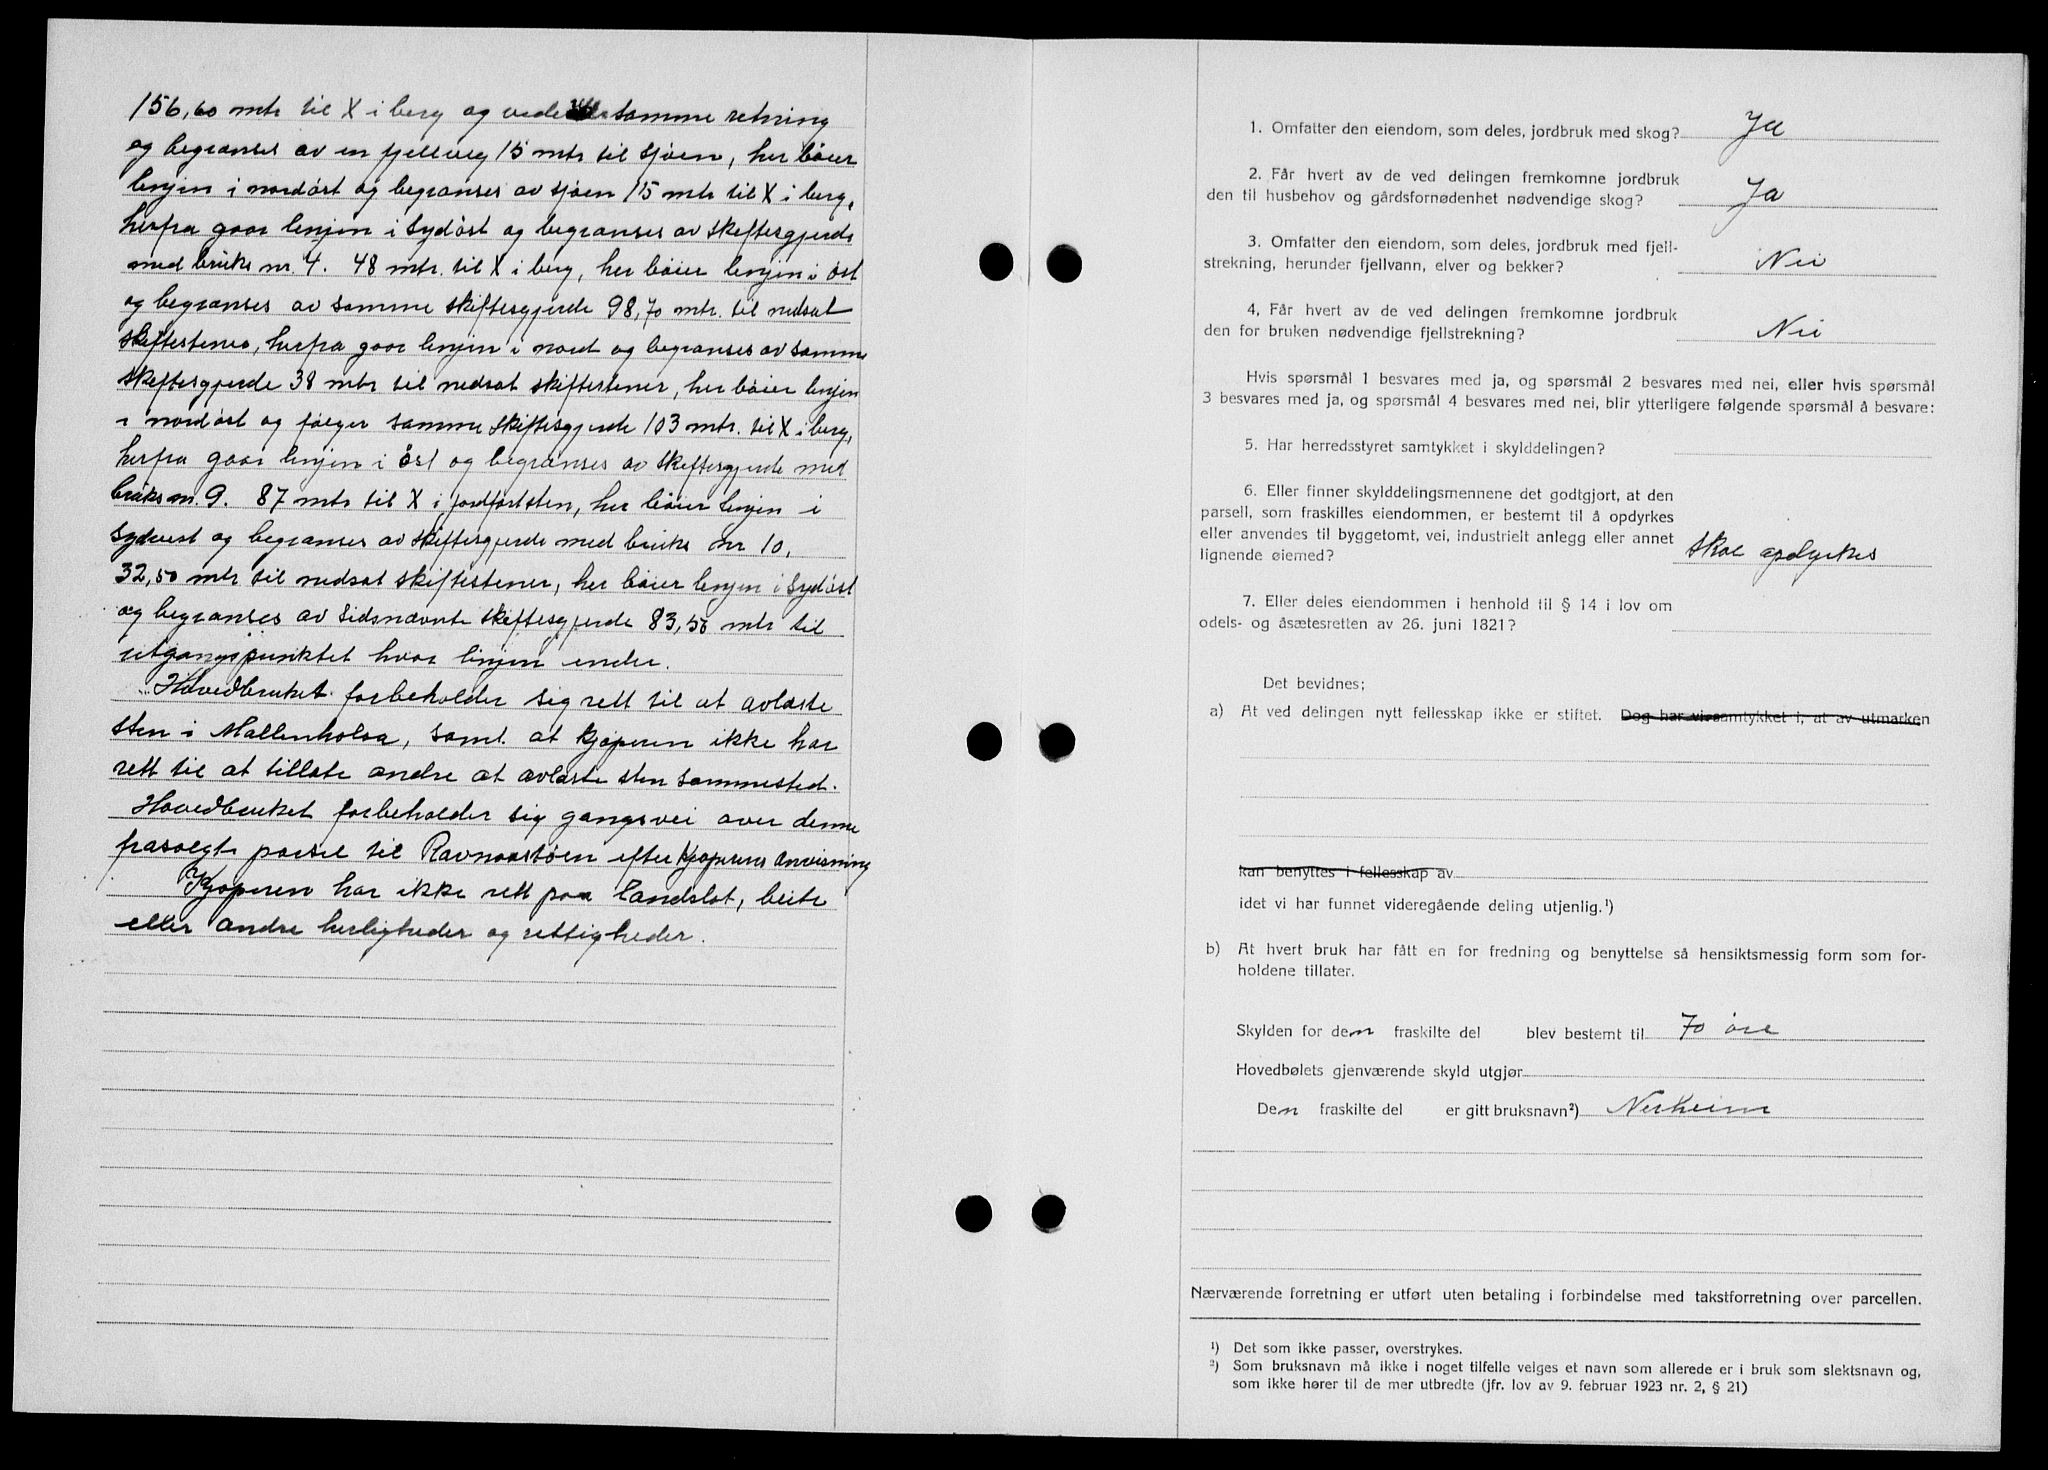 156,60 mtr til X i berg og videre samme retning
og begranses av en fjellveg 15 mtr til sjøen, her bøier
linjen i nordøst og begranses av sjøen 15 mtr til X i berg,
herfra gaar linjen i Sydøst og begranses av skiftesgjerde
med bruks nr. 4. 48 mtr. til X i berg, her bøier linjen i øst
og begranses av samme skiftesgjerde 98,70 mtr. til nedsat
skiftestener, herfra gaar linjen i nord og begranses av samme
skiftesgjerde 38 mtr til nedsat skiftestener, her bøier linjen
i nordøst og følger samme skiftesgjerde 103 mtr. til X i berg,
herfra gaar linjen i øst og begranses av skiftesgjerde med
bruks nr. 9. 87 mtr til X i jordfast sten, her bøier linjen i
Sydvest og begranses av skiftesgjerde med bruks nr 10,
32,50 mtr til nedsat skiftestener, her bøier linjen i Sydøst
og begranses av sidsnævnte skiftesgjerde 83,50 mtr til
utgangspunktet hvor linjen ender.
Hovedbruket forbeholder sig rett til at avlaste
sten i Mallenholaa, samt at kjøperen ikke har
rett til at tillate andre at avlaste sten sammested.
Hovedbruket forbeholder sig gangsvei over denne
frasolgte parsel til Ravnaastøen efter kjøperens anvisning
Kjøperen har ikke rett paa landslot, beite
eller andre herligheder og rettigheder.
1. Omfatter den eiendom, som deles, jordbruk med skog? Ja
2. Får hvert av de ved delingen fremkomne jordbruk
den til husbehov og gårdsfornødenhet nødvendige skog? Ja
3. Omfatter den eiendom, som deles, jordbruk med fjell-
strekning, herunder fjellvann, elver og bekker? Nei
4, Får hvert av de ved delingen fremkomne jordbruk
den for bruken nødvendige fjellstrekning? Nei
Hvis spørsmål 1 besvares med ja, og spørsmål 2 besvares med nei, eller hvis spørsmål
3 besvares med ja, og spørsmål 4 besvares med nei, blir ytterligere følgende spørsmål å besvare:
5. Har herredsstyret samtykket i skylddelingen?
6. Eller finner skylddelingsmennene det godtgjort, at den
parsell, som fraskilles eiendommen, er bestemt til å opdyrkes
eller anvendes til byggetomt, vei, industrielt anlegg eller annet
lignende øiemed? skal opdyrkes
7. Eller deles eiendommen i henhold til § 14 i lov om
odels- og åsætesretten av 26. juni 1821?
Det bevidnes;
a) At ved delingen nytt fellesskap ikke er stiftet. Dog har vi samtykket i, at av utmarken
kan benyttes i fellesskap av
idet vi har funnet videregående deling utjenlig.¹)
b) At hvert bruk har fått en for fredning og benyttelse så hensiktsmessig form som for-
holdene tillater.
Skylden for den fraskilte del blev bestemt til 70 øre
Hovedbølets gjenværende skyld utgjør
Den fraskilte del er gitt bruksnavn²) Nerheim
Nærværende forretning er utført uten betaling i forbindelse med takstforretning over parcellen.
¹) Det som ikke passer, overstrykes.
²) Som bruksnavn må ikke i noget tilfelle velges et navn som allerede er i bruk som slektsnavn og,
som ikke hører til de mer utbredte (jfr. lov av 9. februar 1923 nr. 2, § 21)